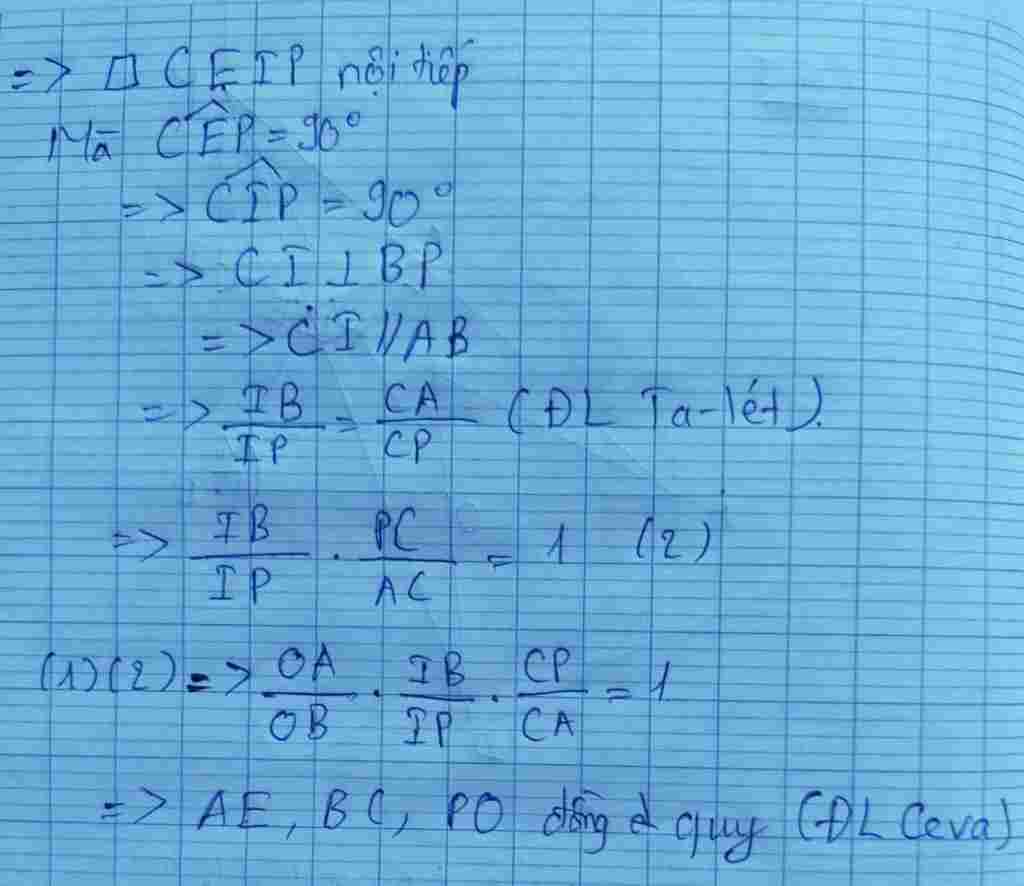 => □ CEIP nội tiếp
Mà \widehat{CEP} = 90°
=> \widehat{CIP} = 90°
=> CI ⊥ BP
=> CI // AB
=> \frac{IB}{IP} = \frac{CA}{CP} (ĐL Ta-lét).
=> \frac{IB}{IP} . \frac{PC}{AC} = 1 (2)
(1)(2) => \frac{OA}{OB} . \frac{IB}{IP} . \frac{CP}{CA} = 1
=> AE, BC, PO đồng quy (ĐL Ceva)